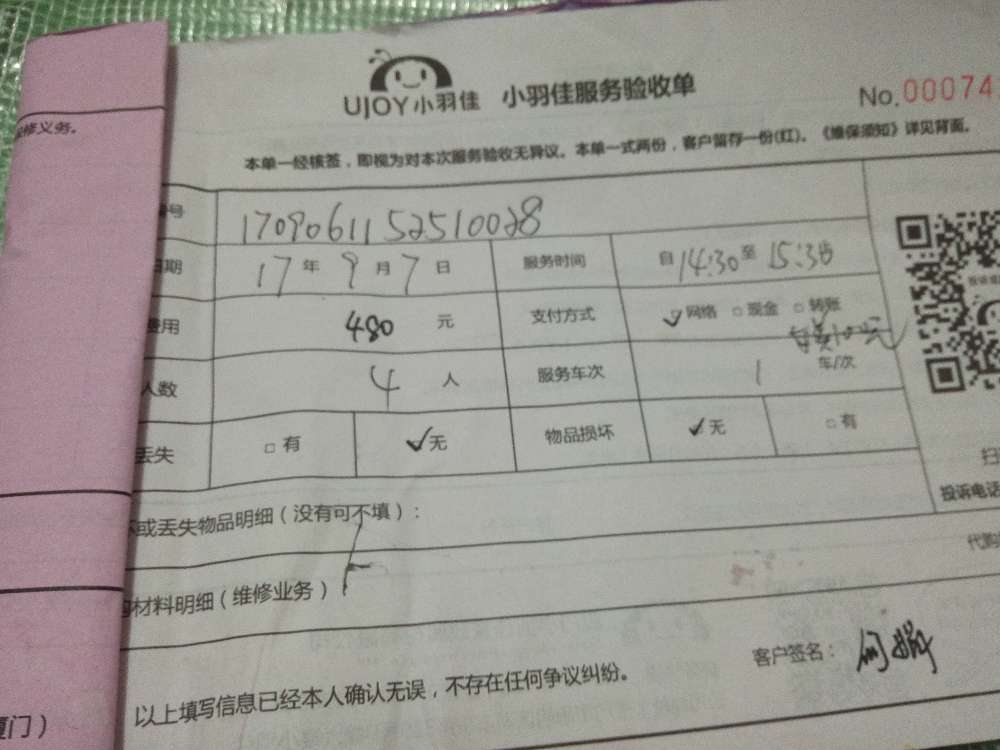 修义务。
UJOY小羽佳 小羽佳服务验收单
No.00074
本单一经核签，即视为对本次服务验收无异议。本单一式两份，客户留存一份(红)。《维保须知》详见背面。
号 1709061152510028
日期 17年9月7日 服务时间 自14:30至15:30
费用 480元 支付方式 ✓网络 □现金 □转账
人数 4人 服务车次 1车/次
丢失 □有 ✓无 物品损坏 ✓无 □有
或丢失物品明细（没有可不填）：
材料明细（维修业务）
投诉电话
代购
以上填写信息已经本人确认无误，不存在任何争议纠纷。 客户签名：
厦门）